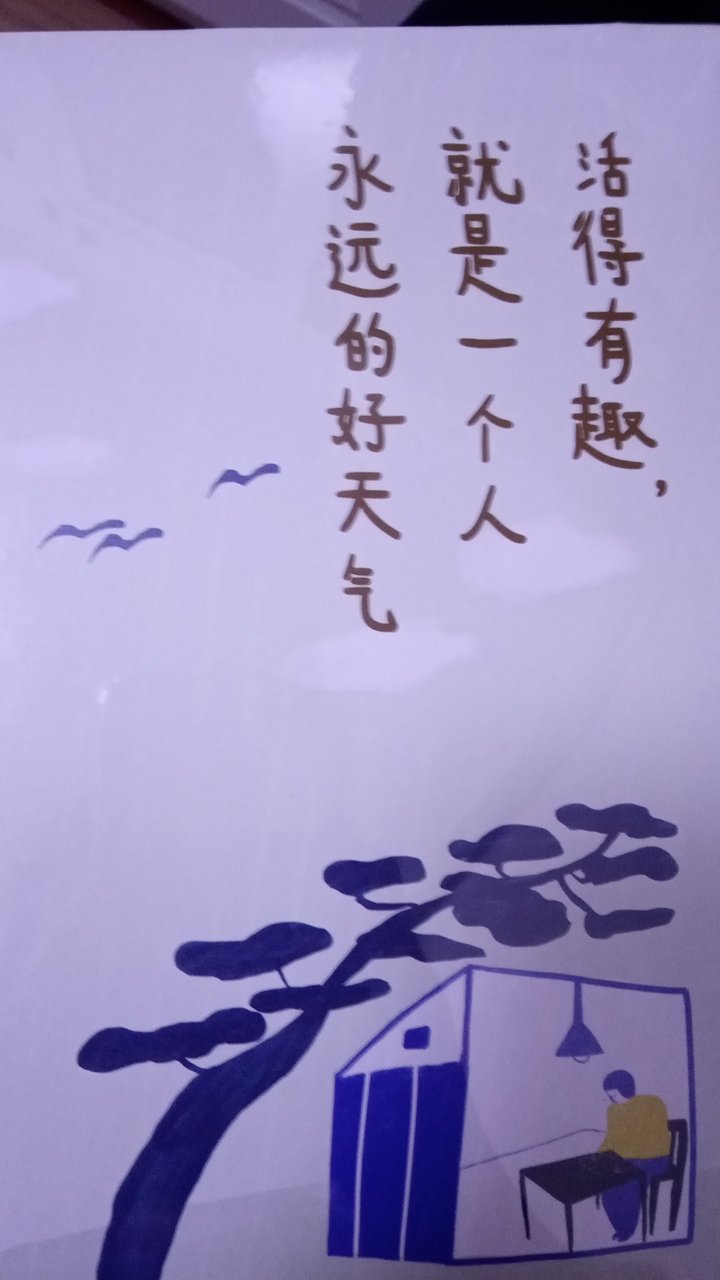 活得有趣，
就是一个人
永远的好天气